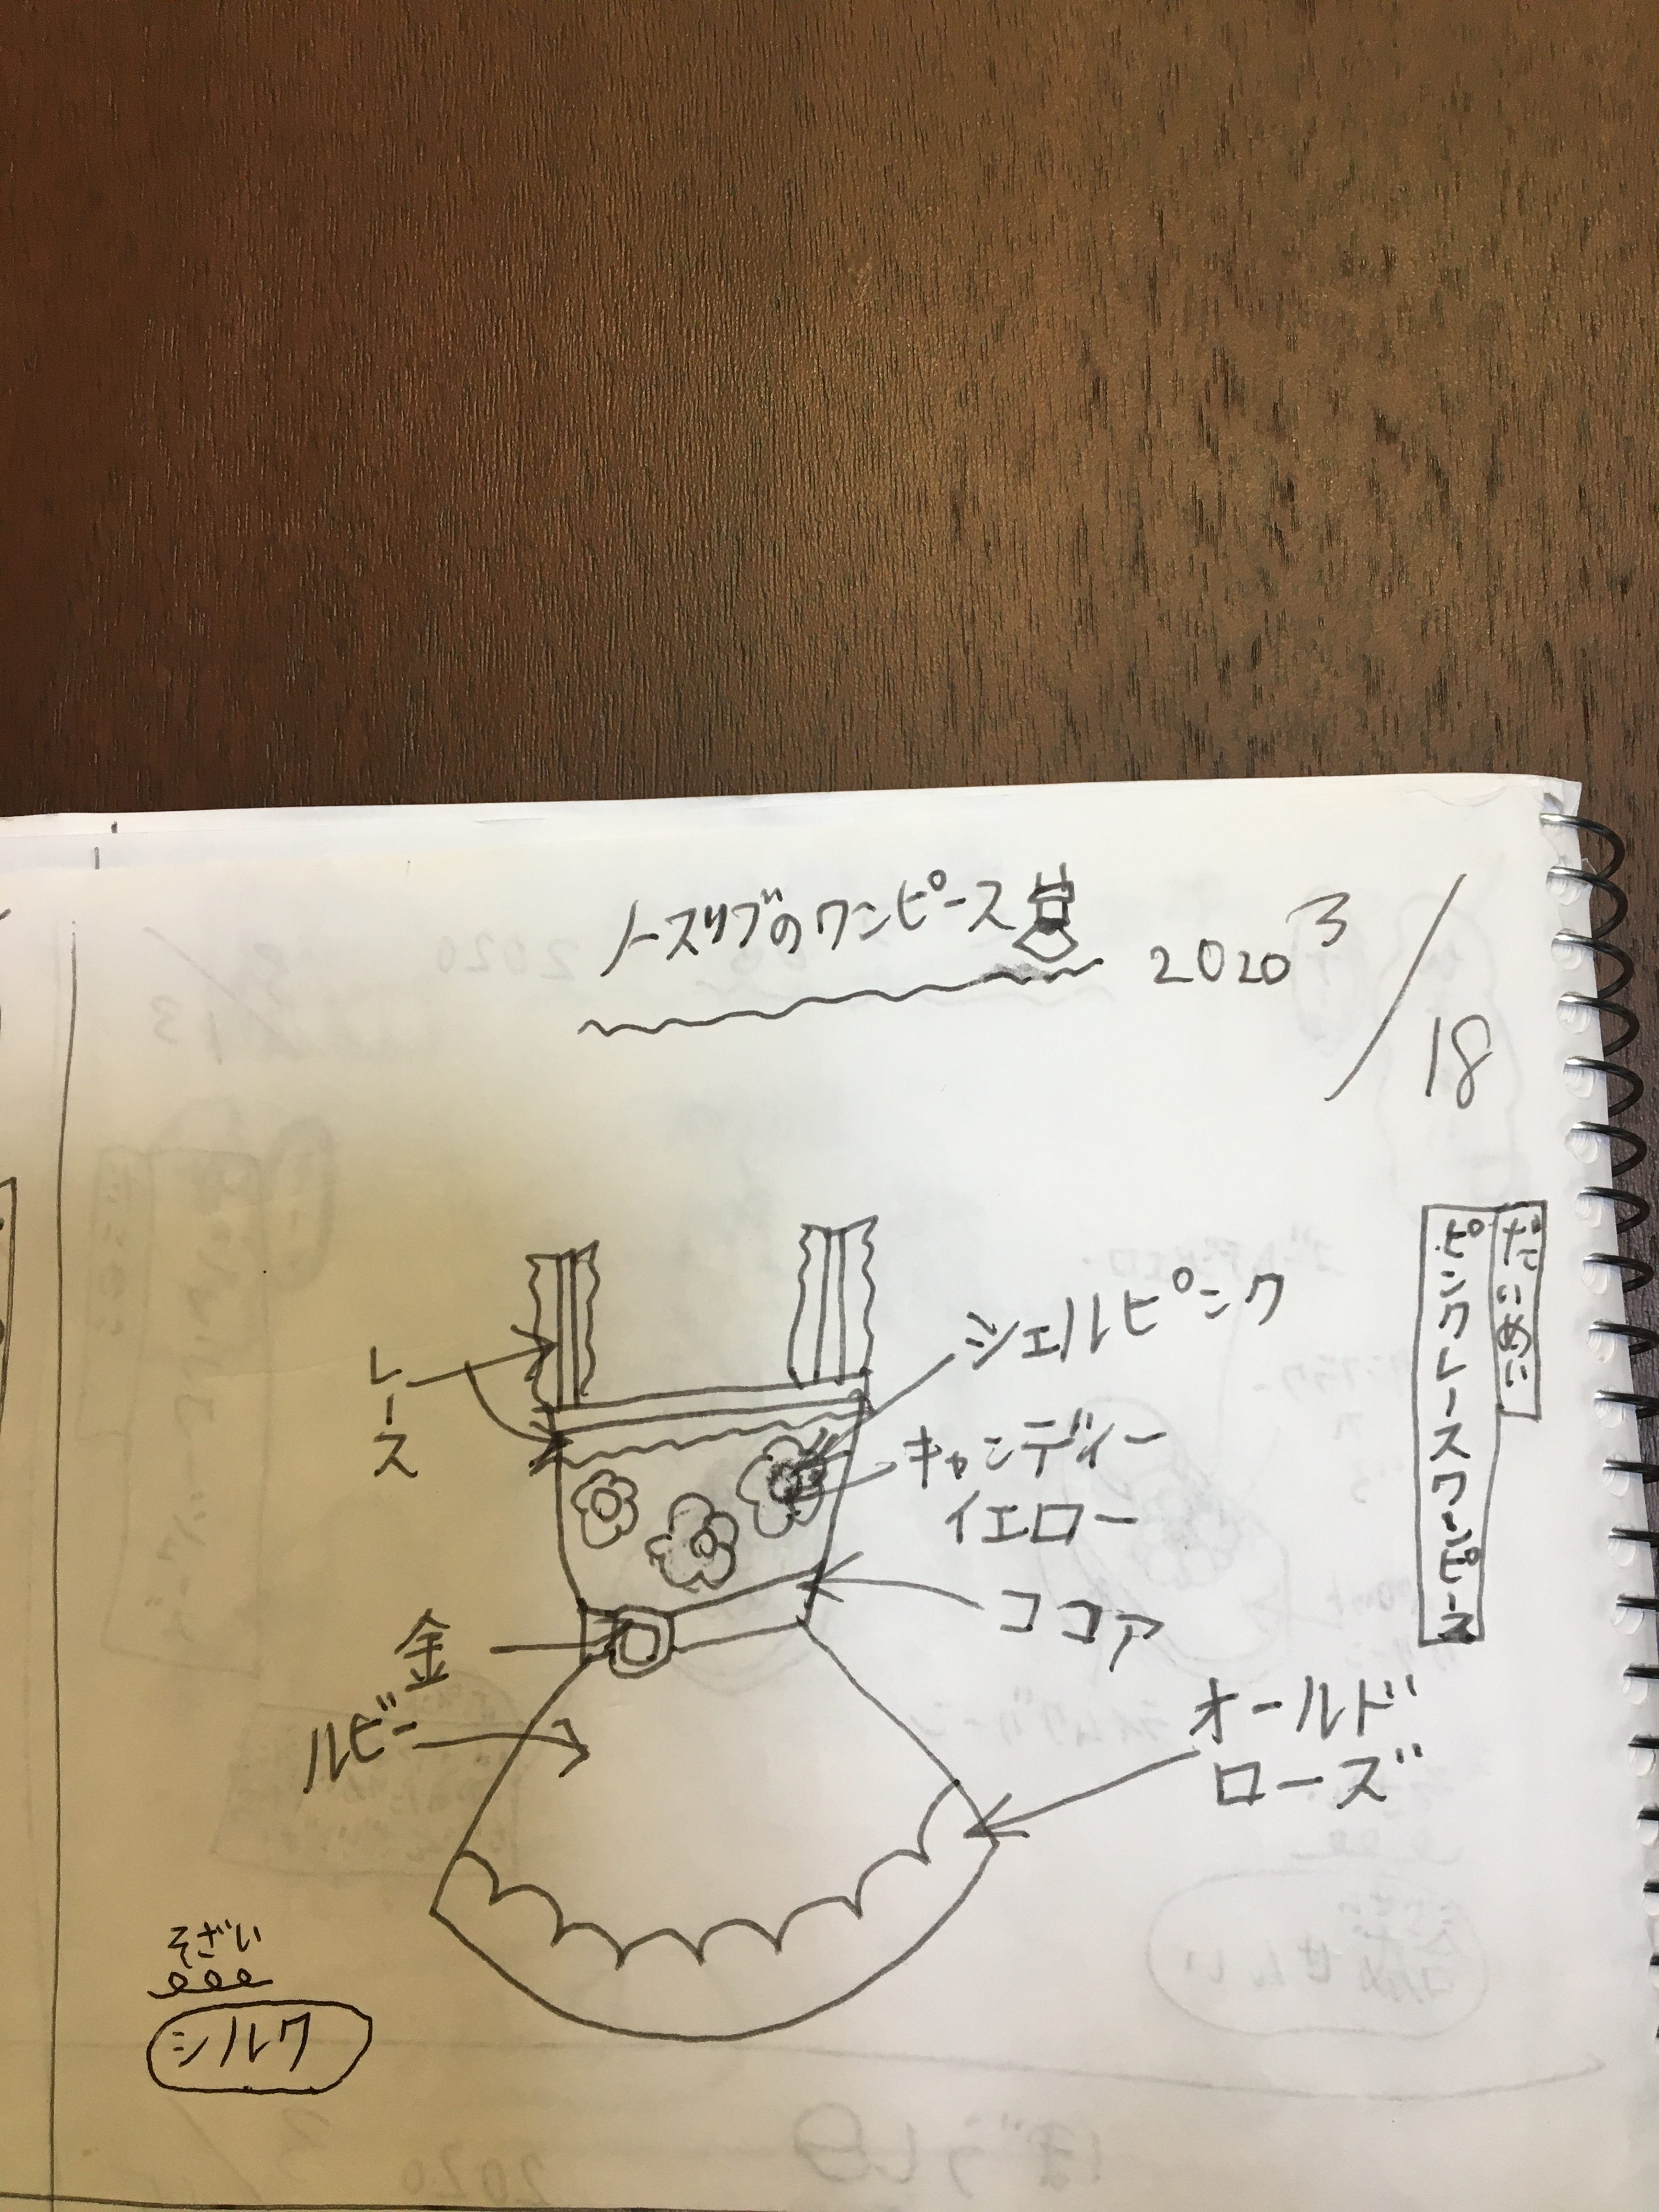 ノースリブのワンピース
2020 3/18
だいめい
ピンクレースワンピース
レース
シェルピンク
キャンディー
イエロー
ココア
金
ルビー
オールド
ローズ
そざい
シルク